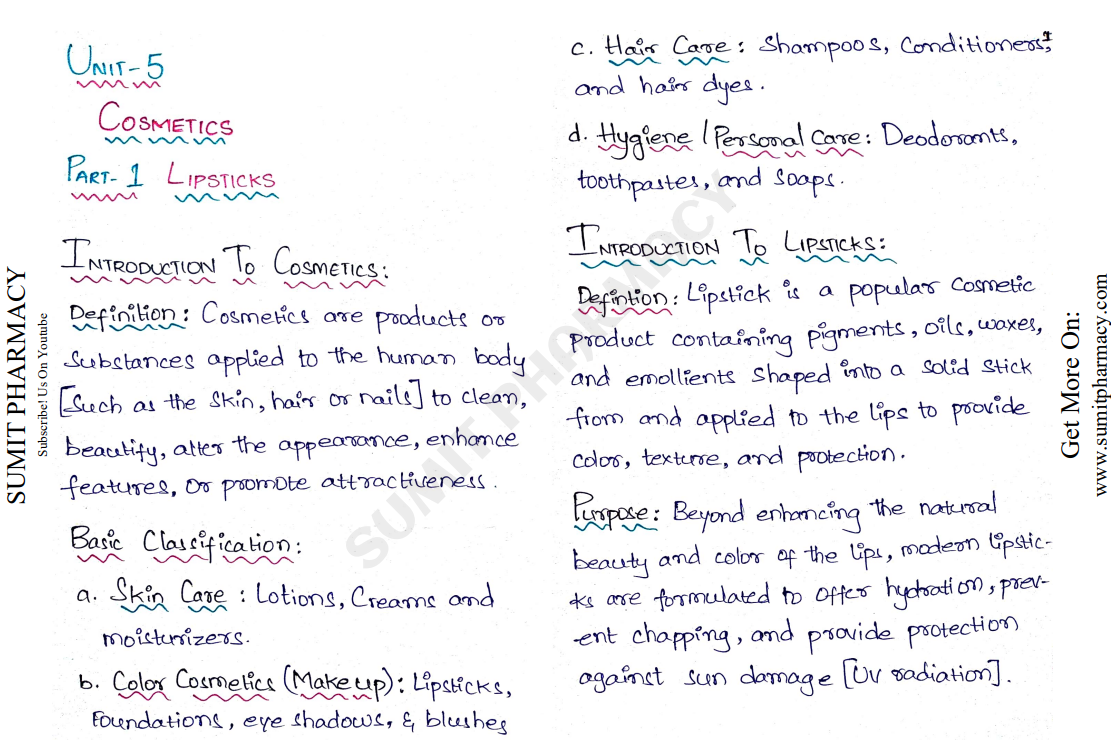 UNIT-5
COSMETICS
PART-1 LIPSTICKS
INTRODUCTION TO COSMETICS:
Definition: Cosmetics are products or
substances applied to the human body
[Such as the skin, hair or nails] to clean,
beautify, alter the appearance, enhance
features, or promote attractiveness.
Basic Classification:
a. Skin Care: Lotions, Creams and
moisturizers.
b. Color Cosmetics (Makeup): Lipsticks,
Foundations, eye shadows, & blushes
c. Hair Care: Shampoos, Conditioners,
and hair dyes.
d. Hygiene / Personal Care: Deodorants,
toothpastes, and soaps.
INTRODUCTION TO LIPSTICKS:
Defintion: Lipstick is a popular cosmetic
product containing pigments, oils, waxes,
and emollients shaped into a solid stick
from and applied to the lips to provide
color, texture, and protection.
Purpose: Beyond enhancing the natural
beauty and color of the lips, modern lipstic-
ks are formulated to offer hydration, prev-
-ent chapping, and provide protection
against sun damage [UV radiation].
SUMIT PHARMACY
Subscribe! Us On Youtube
Get More On:
www.sumitpharmacy.com
SUMIT PHARMACY
SUMIT PHARMACY
1